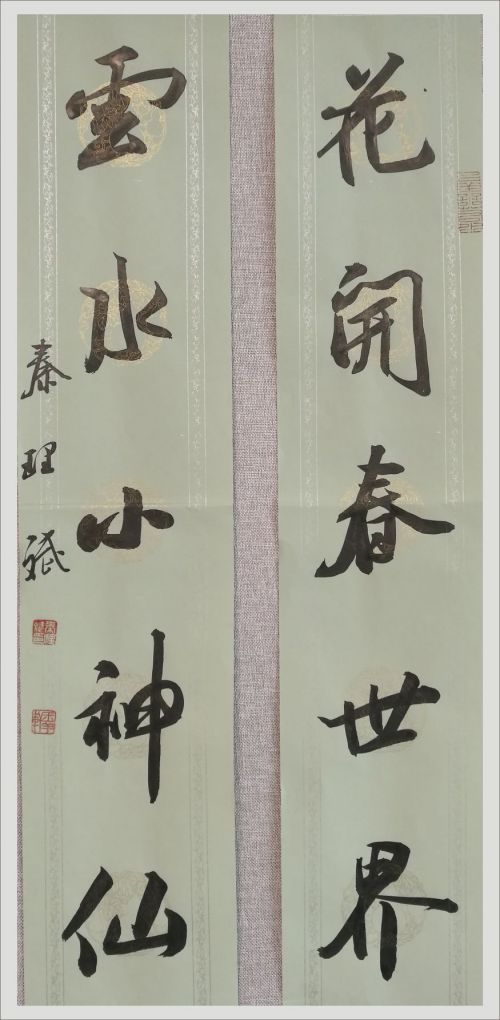 花開春世界
雲水小神仙
秦理斌